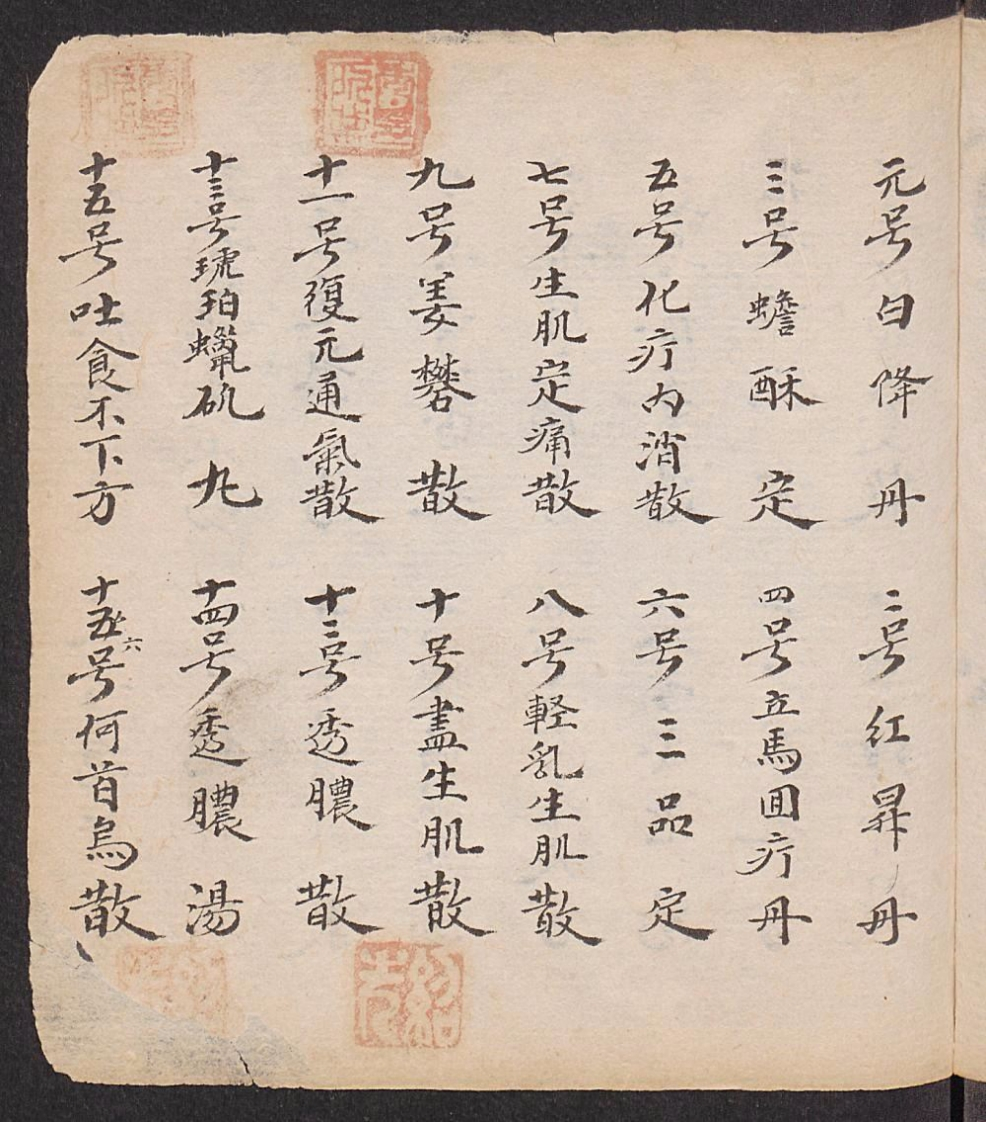 元号白降丹 二号紅昇丹
三号蟾酥定 四号立馬回疔丹
五号化疔内消散 六号三品定
七号生肌定痛散 八号軽乳生肌散
九号姜礬散 十号盡生肌散
十一号復元通氣散 十二号透膿散
十三号琥珀蠟矾丸 十四号透膿湯
十五号吐食不下方 十五六号何首烏散